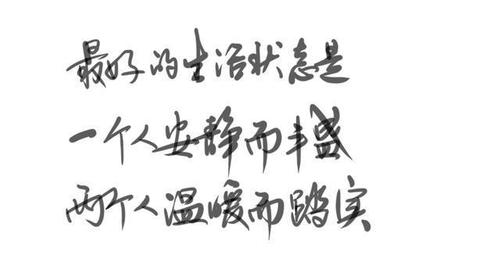 最好的生活状态是
一个人安静而丰盛
两个人温暖而踏实